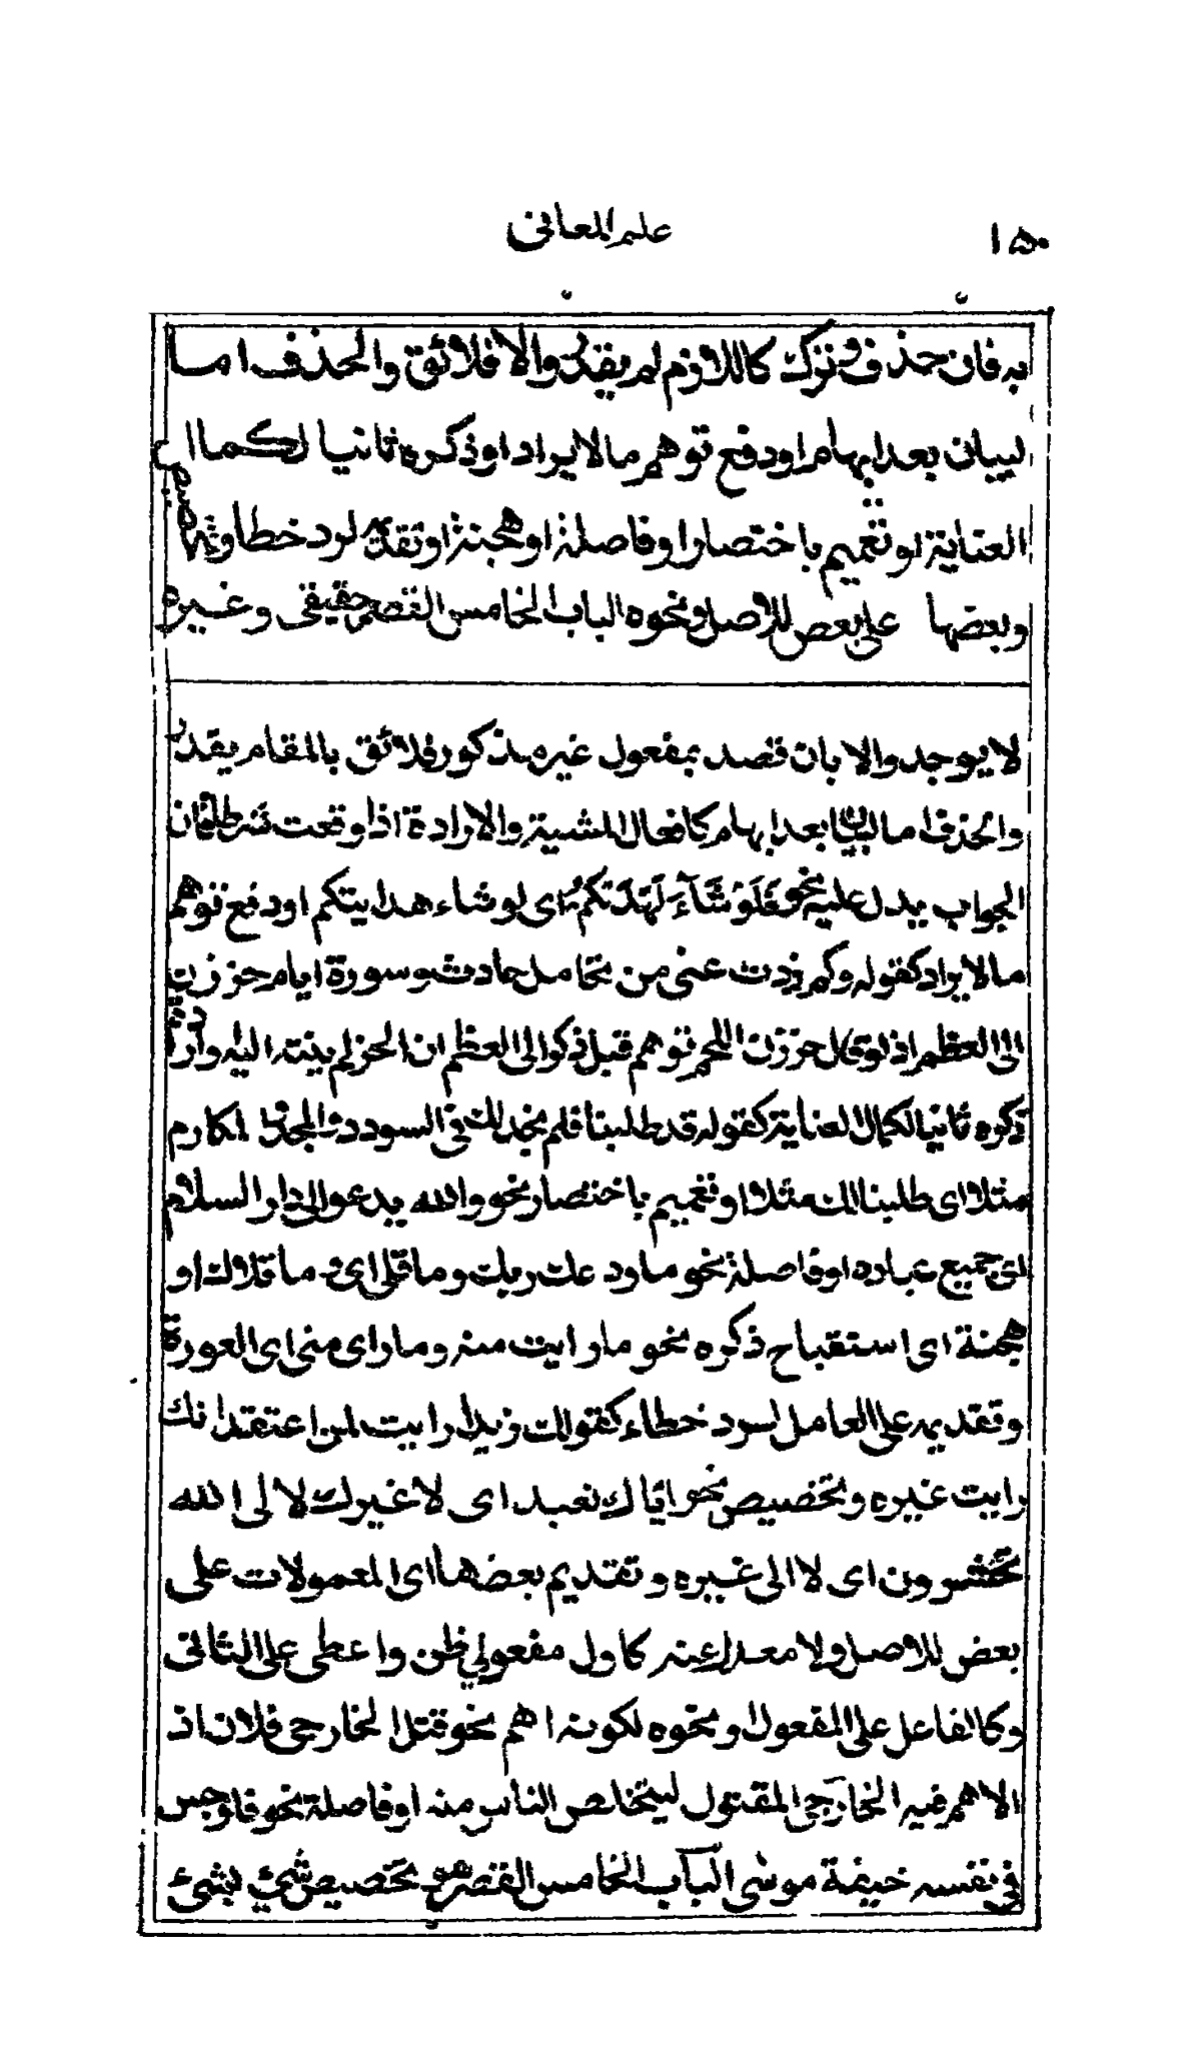 ١٥٠ علم المعاني
به فان حذف ونزل كاللازم لم يقدر والا فلائق والحذف اما
لبيان بعد ابهام اودفع توهم مالا يراد اوذكره ثانيا لكمال
العناية او تعميم باختصار او فاصلة او هجنة او تقديمه لرد خطا وتخصيص
وبعضها على بعض للاصل ونحوه الباب الخامس القصر حقيقى وغيره
لا يوجد والا بان قصد بمفعول غيره مذكور فلائق بالمقام يقدر
والحذف اما لبيان بعد ابهام كافعال المشية والارادة اذا وقعت شرطا فان
الجواب يدل عليه نحو فَلَوْ شَآءَ لَهَدَىٰكُمْ اى لو شاء هدايتكم اودفع توهم
مالا يراد كقوله وكم ذدت عنى من تحامل حادث وسورة ايام حززن
الى العظم اذ لو قال حززن اللحم توهم قبل ذكر الى العظم ان الحز لم ينته اليه وارادة
ذكره ثانيا لكمال العناية كقوله قد طلبنا فلم نجد لك فى السودد والمجد والمكارم
مثلا اى طلبنا لك مثلا او تعميم باختصار نحو والله يدعو الى دار السلام
اى جميع عباده او فاصلة نحو ما ودعك ربك وما قلى اى وما قلاك او
هجنة اى استقباح ذكره نحو ما رايت منه وما راى منى اى العورة
وتقديمه على العامل لرد خطاء كقولك زيدا رايت لمن اعتقد انك
رايت غيره وتخصيص نحو اياك نعبد اى لا غيرك لا لى الله
تحشرون اى لا الى غيره وتقديم بعضها اى المعمولات على
بعض للاصل ولا معدل عنه كاول مفعولي ظن واعطى على الثانى
وكالفاعل على المفعول او نحوه لكونه اهم نحو قتل الخارجى فلان اذ
الاهم فيه الخارجى المقتول ليتخلص الناس منه او فاصلة نحو فاوجس
في نفسه خيفة موسى الباب الخامس القصر هو تخصيص شئ بشئ